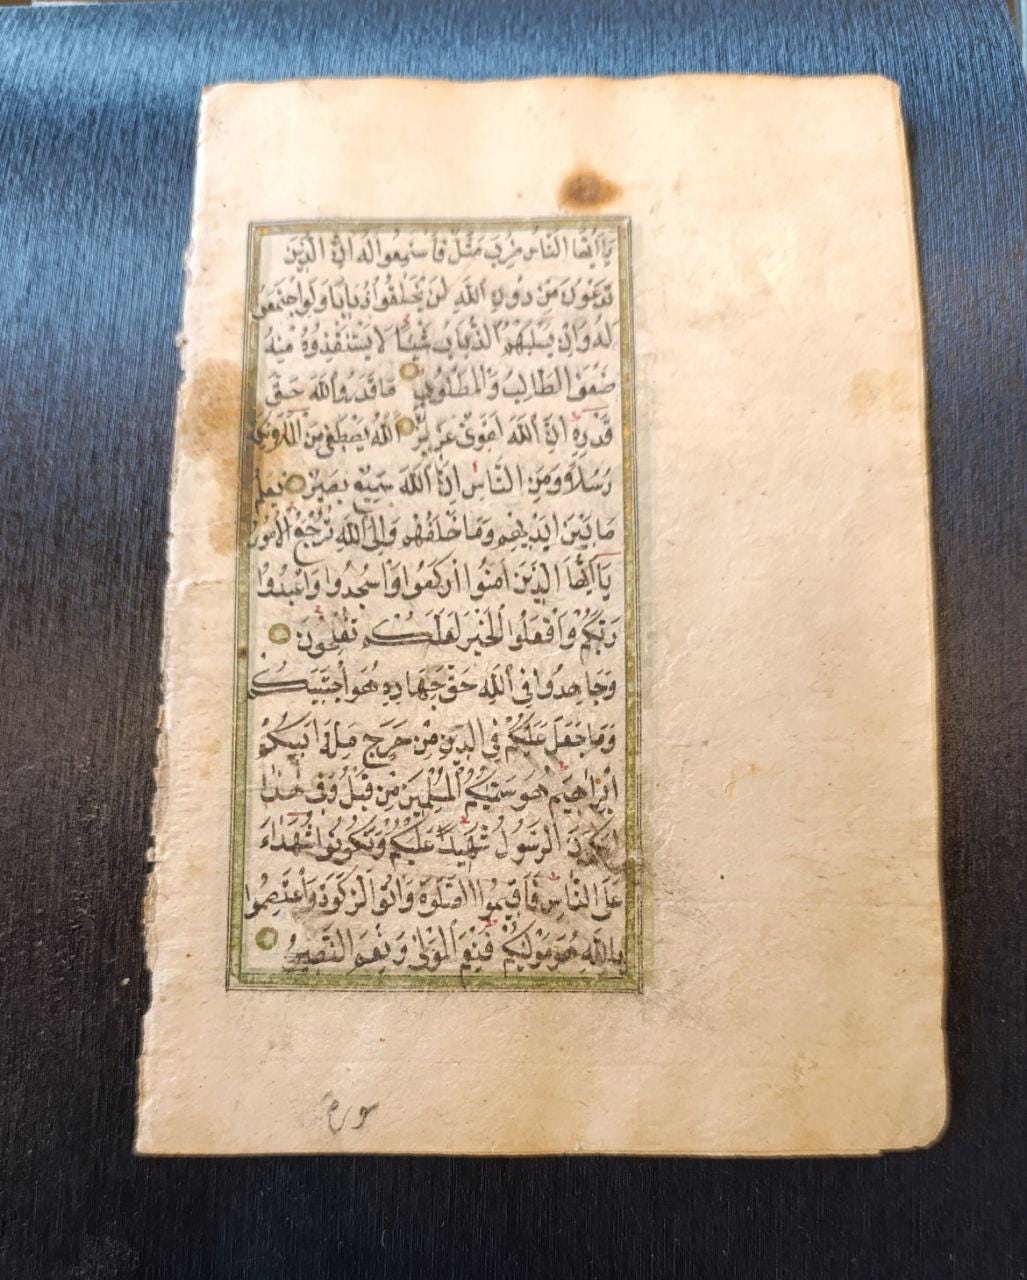 يَاأَيُّهَا النَّاسُ ضُرِبَ مَثَلٌ فَاسْتَمِعُوا لَهُ اِنَّ الَّذِينَ
تَدْعُونَ مِنْ دُونِ اللَّهِ لَنْ يَخْلُقُوا ذُبَابًا وَلَوِ اجْتَمَعُوا
لَهُ وَاِنْ يَسْلُبْهُمُ الذُّبَابُ شَيْئًا لَا يَسْتَنْقِذُوهُ مِنْهُ
ضَعُفَ الطَّالِبُ وَالْمَطْلُوبُ مَا قَدَرُوا اللَّهَ حَقَّ
قَدْرِهِ اِنَّ اللَّهَ لَقَوِىٌّ عَزِيزٌ اَللَّهُ يَصْطَفِى مِنَ الْمَلٰٓئِكَةِ
رُسُلًا وَمِنَ النَّاسِ اِنَّ اللَّهَ سَمِيعٌ بَصِيرٌ يَعْلَمُ
مَا بَيْنَ اَيْدِيهِمْ وَمَا خَلْفَهُمْ وَاِلَى اللَّهِ تُرْجَعُ الْاُمُورُ
يَاأَيُّهَا الَّذِينَ اٰمَنُوا ارْكَعُوا وَاسْجُدُوا وَاعْبُدُوا
رَبَّكُمْ وَافْعَلُوا الْخَيْرَ لَعَلَّكُمْ تُفْلِحُونَ
وَجَاهِدُوا فِى اللَّهِ حَقَّ جِهَادِهِ هُوَ اجْتَبٰيكُمْ
وَمَا جَعَلَ عَلَيْكُمْ فِى الدِّينِ مِنْ حَرَجٍ مِلَّةَ اَبِيكُمْ
اِبْرَاهِيمَ هُوَ سَمّٰيكُمُ الْمُسْلِمِينَ مِنْ قَبْلُ وَفِى هٰذَا
لِيَكُونَ الرَّسُولُ شَهِيدًا عَلَيْكُمْ وَتَكُونُوا شُهَدَاءَ
عَلَى النَّاسِ فَاَقِيمُوا الصَّلٰوةَ وَاٰتُوا الزَّكٰوةَ وَاعْتَصِمُوا
بِاللَّهِ هُوَ مَوْلٰيكُمْ فَنِعْمَ الْمَوْلٰى وَنِعْمَ النَّصِيرُ
سوره